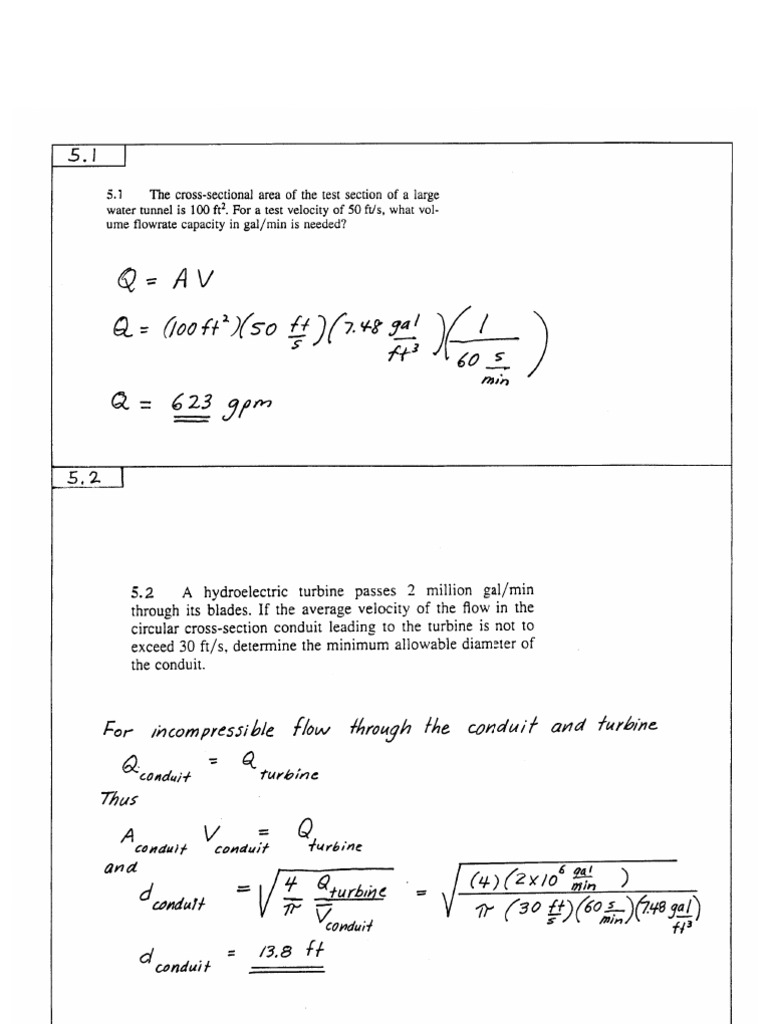 5.1
5.1 The cross-sectional area of the test section of a large
water tunnel is 100 ft². For a test velocity of 50 ft/s, what vol-
ume flowrate capacity in gal/min is needed?
Q = A V
Q = (100 ft²)(50 ft/s)(7.48 gal/ft³)(1/60 s/min)
Q = 623 gpm
5.2
5.2 A hydroelectric turbine passes 2 million gal/min
through its blades. If the average velocity of the flow in the
circular cross-section conduit leading to the turbine is not to
exceed 30 ft/s, determine the minimum allowable diameter of
the conduit.
For incompressible flow through the conduit and turbine
Q conduit = Q turbine
Thus
A conduit V conduit = Q turbine
and
d conduit = √(4/π Q turbine/V̅ conduit) = √((4)(2x10⁶ gal/min)/π (30 ft/s)(60 s/min)(7.48 gal/ft³))
d conduit = 13.8 ft